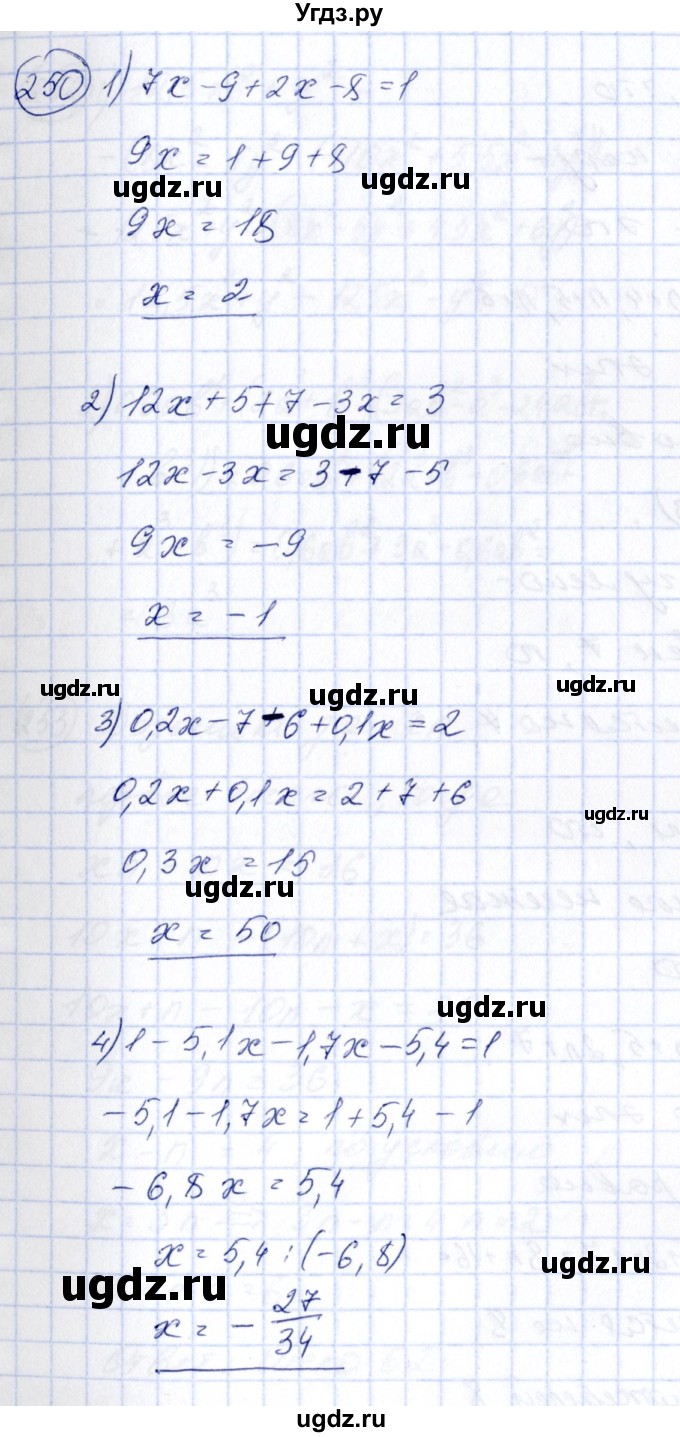 Угдз.ру
250 1) 7x - 9 + 2x - 8 = 1
9x = 1 + 9 + 8
ugdz.ru ugdz.ru
9x = 18
x = 2
2) 12x + 5 + 7 - 3x = 3
ugdz.ru
12x - 3x = 3 - 7 - 5
9x = -9
x = -1
ugdz.ru ugdz.ru
3) 0,2x - 7 - 6 + 0,1x = 2
0,2x + 0,1x = 2 + 7 + 6
ugdz.ru
0,3x = 15
ugdz.ru
x = 50
ugdz.ru
4) 1 - 5,1x - 1,7x - 5,4 = 1
-5,1 - 1,7x = 1 + 5,4 - 1
-6,8x = 5,4
x = 5,4 : (-6,8)
ugdz.ru ugdz.ru
x = - 27/34
ugdz.ru